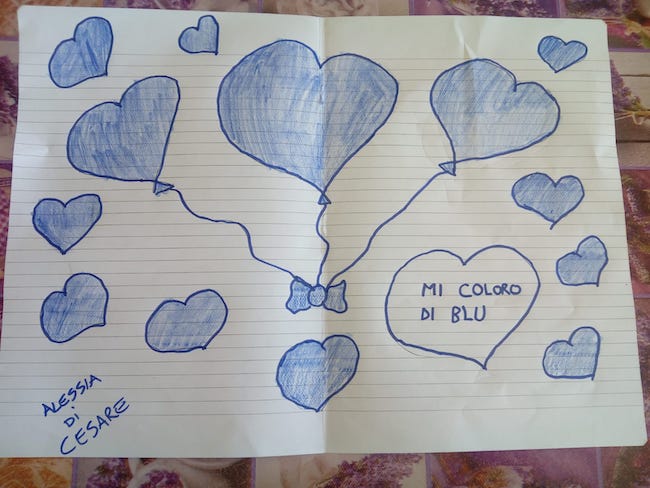 MI COLORO
DI BLU
ALESSIA
Di
CESARE